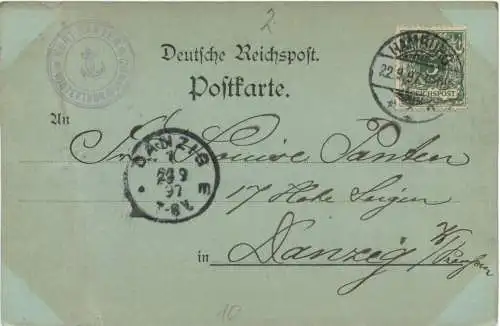 2
Deutsche Reichspost.
Postkarte.
HAMBURG
22.9.97
REICHSPOST
An
Louise Panten
DANZIG
23 9
97
17 Hohe Seigen
in Danzig
10